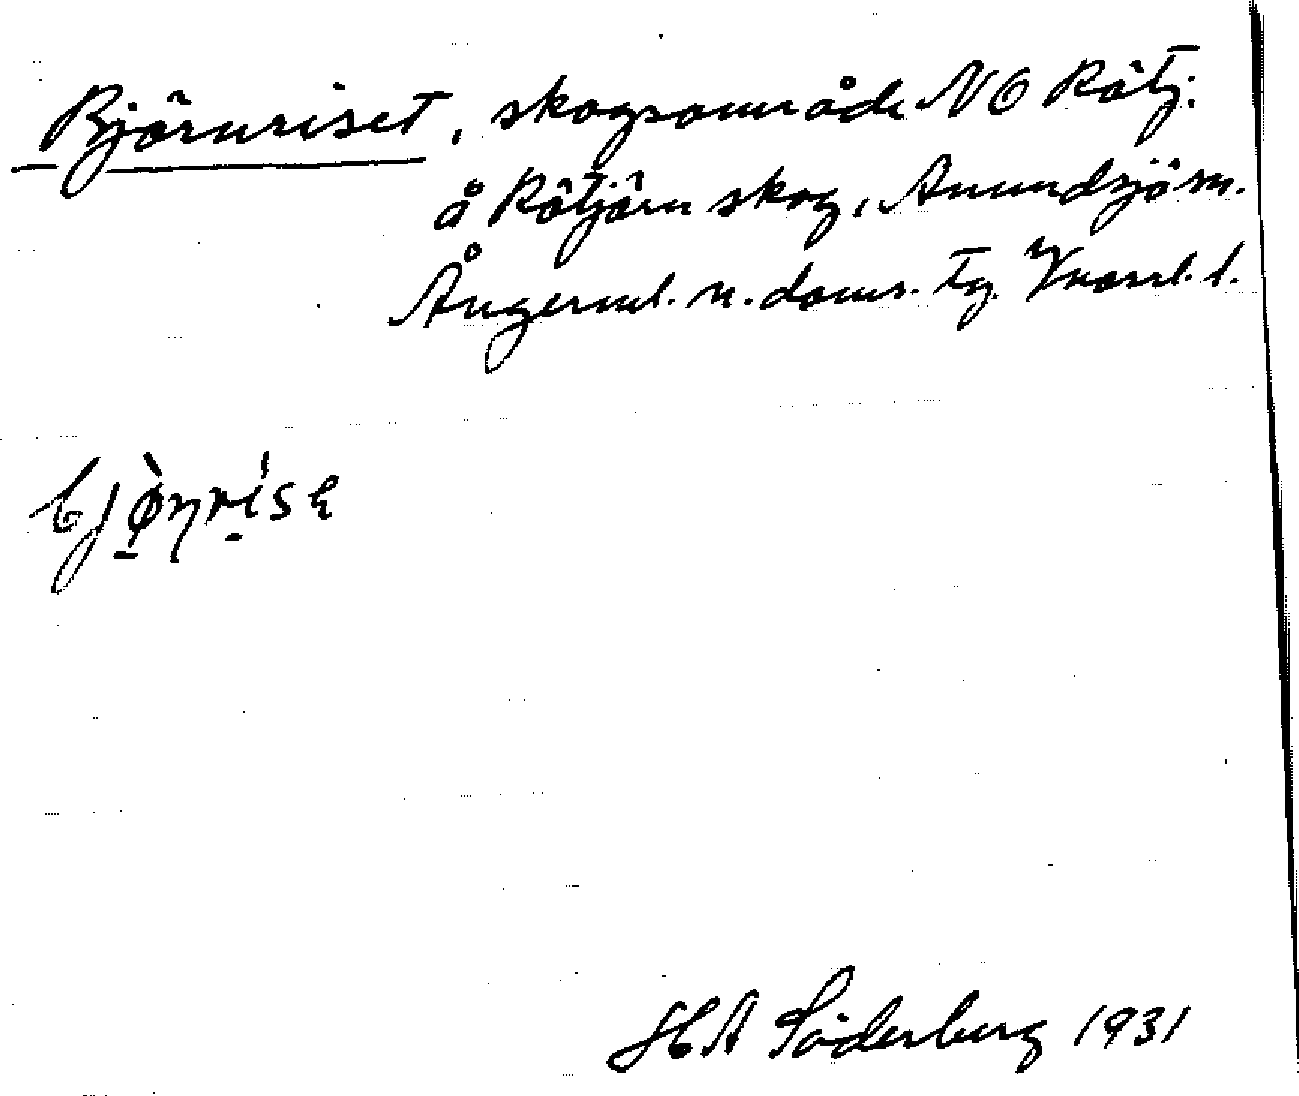 Björnriset, skogsområde NO Rötj.
å Rötjärn skog, Anundsjö sn.
Ångerml. n. doms. tg. Vnorrl. l.
bjø̀ṇrísε
HA Söderberg 1931